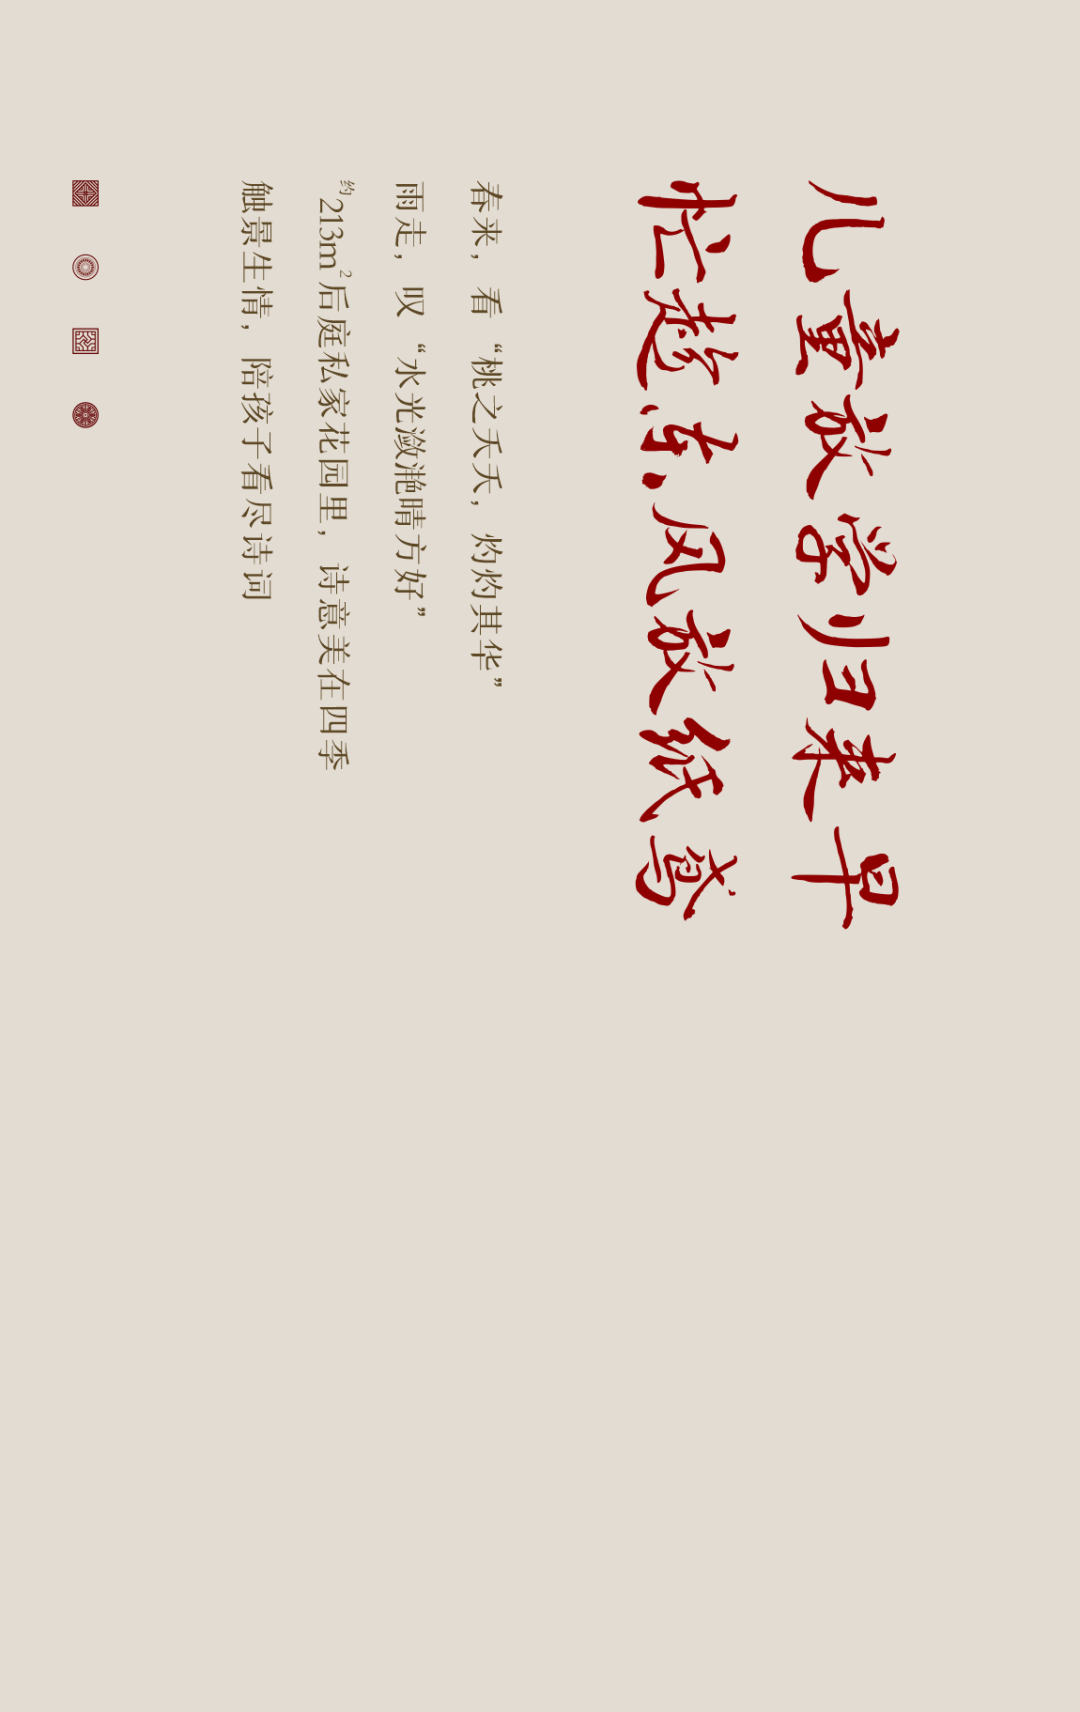 儿童放学归来早
忙趁东风放纸鸢
春来，看“桃之夭夭，灼灼其华”
雨走，叹“水光潋滟晴方好”
约213m²后庭私家花园里，诗意美在四季
触景生情，陪孩子看尽诗词